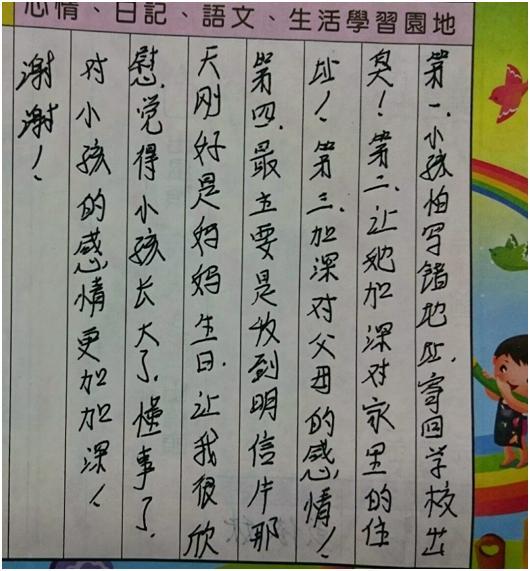 心情、日記、語文、生活學習園地
第一.小孩怕写错地址.寄回学校出
臭！第二.让她加深对家里的住
址！第三.加深对父母的感情！
第四.最主要是收到明信片那
天刚好是妈妈生日.让我很欣
慰.觉得小孩长大了.懂事了.
对小孩的感情更加加深！
谢谢！